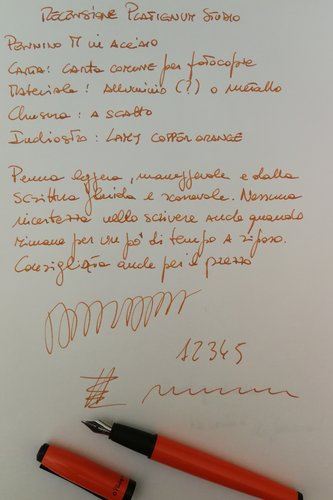 RECENSIONE PLATIGNUM STUDIO
PENNINO M in ACCIAIO
CARTA: CARTA COMUNE per fotocopie
MATERIALE: ALLUMINIO (?) o METALLO
CHIUSURA: A SCATTO
INCHIOSTRO: LAMY COPPER ORANGE
Penna leggera, maneggevole e dalla
scrittura fluida e scorrevole. Nessuna
incertezza nello scrivere anche quando
rimane per un po' di tempo A riposo.
Consigliata anche per il prezzo
12345